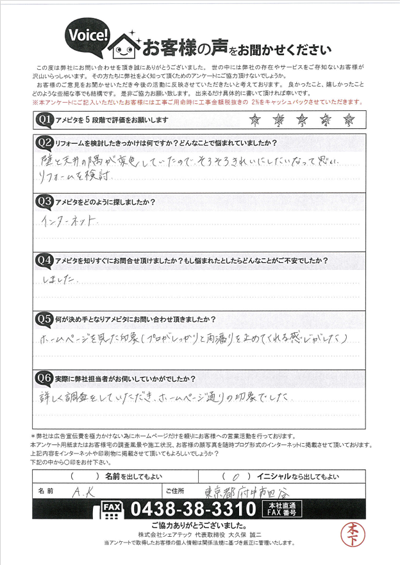 Voice! お客様の声をお聞かせください
この度は弊社にお問い合わせを頂き誠にありがとうございました。世の中には弊社の存在やサービスをご存知ないお客様が
沢山いらっしゃいます。その方たちに弊社をよく知って頂くためのアンケートにご協力頂けないでしょうか。
お客様のご意見をお聞かせいただき今後の活動に反映させていただきたいと考えております。良かったこと、嬉しかったこと
どのような些細な事でも結構です。是非ご協力お願い致します。出来るだけ具体的に書いて頂ければ幸いです。
※本アンケートにご記入いただいたお客様には工事ご用命時に工事金額税抜きの 2%をキャッシュバックさせていただきます。
Q1 アメピタを5段階で評価をお願いします ☆ ☆ ☆ ☆ ☆
Q2 リフォームを検討したきっかけは何ですか?どんなことで悩まれていましたか?
壁と天井の隅が変色していたので、そろそろきれいにしたいなって思い
リフォームを検討.
Q3 アメピタをどのように探しましたか?
インターネット
Q4 アメピタを知りすぐにお問合せ頂けましたか?もし悩まれたとしたらどんなことがご不安でしたか?
しました
Q5 何が決め手となりアメピタにお問い合わせ頂きましたか?
ホームページを見た印象(プロがしっかりと雨漏りを止めてくれる感じがした)
Q6 実際に弊社担当者がお伺いしていかがでしたか?
詳しく調査をしていただき、ホームページ通りの印象でした.
*弊社は広告宣伝費を極力かけない為にホームページだけを頼りにお客様への営業活動を行っております。
本アンケート用紙またはお客様宅の調査風景や施工状況、お客様の顔写真を随時ブログ形式のインターネットに掲載させて頂いております。
上記内容をインターネットや印刷物に掲載させて頂いてもよろしいでしょうか?
下記の中から〇印をお付け下さい。
( ) 名前を出してもよい ( O ) イニシャルなら出してもよい
名前 A.K ご住所 東京都府中市四谷
FAX 0438-38-3310 本社直通 FAX番号
ご協力ありがとうございました。
株式会社シェアテック 代表取締役 大久保 誠二
当アンケートで取得したお客様の個人情報は関係法規に基づき厳正に管理いたします。
木下